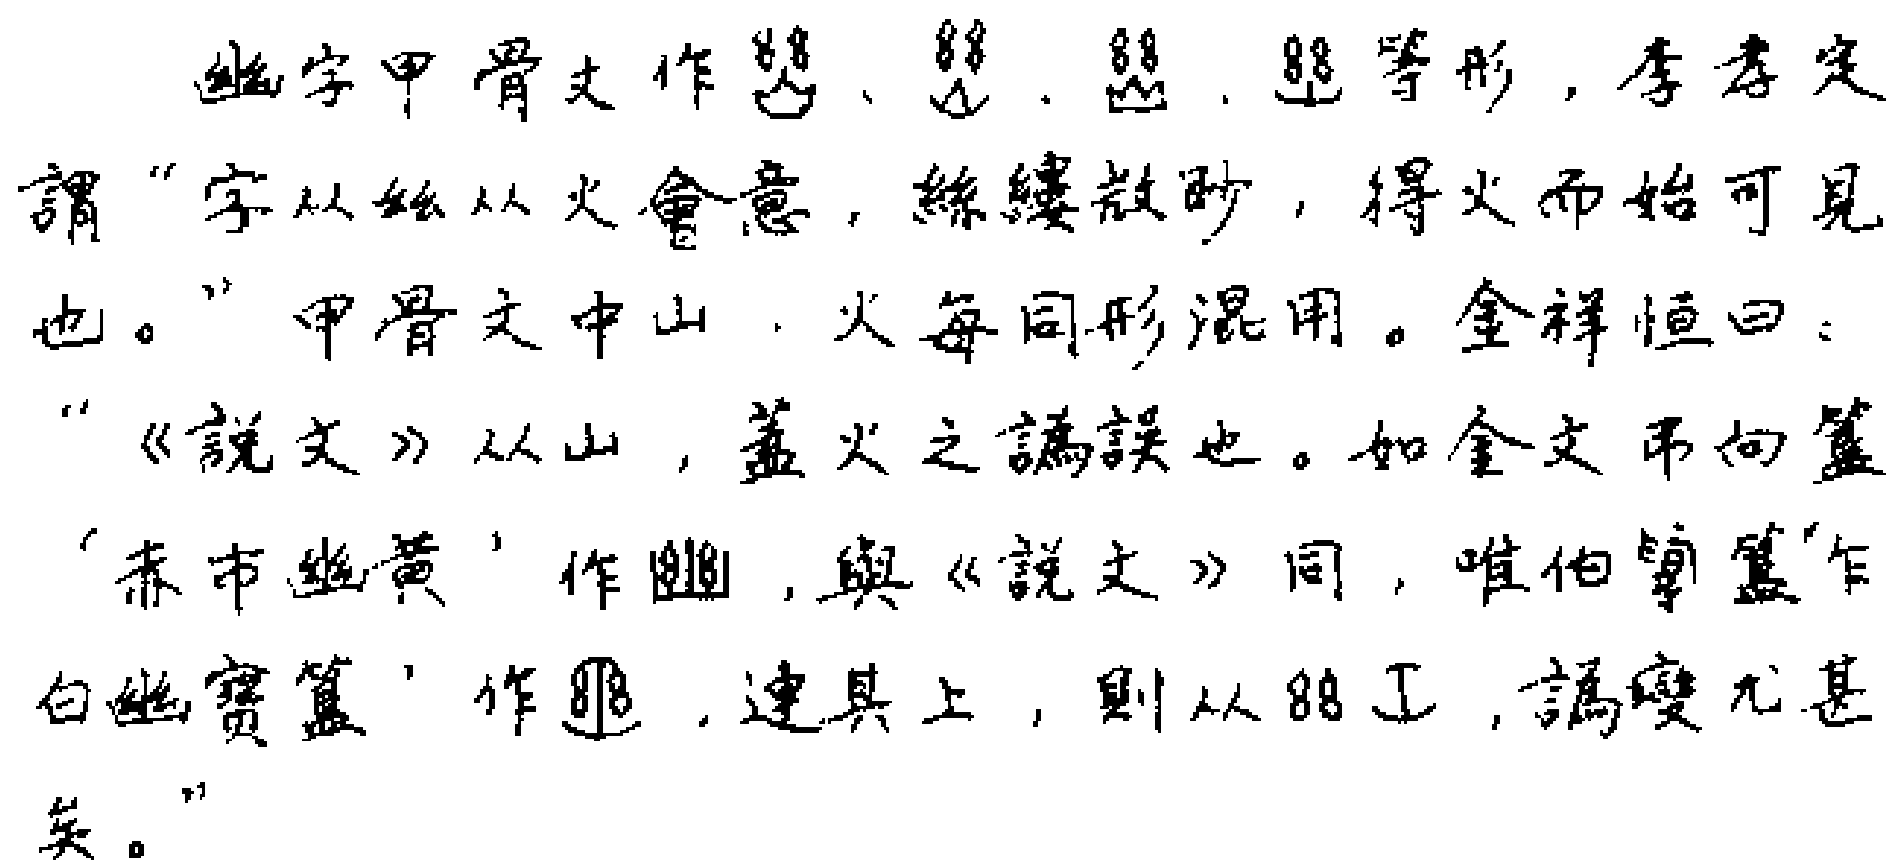 幽字甲骨文作、、、等形，李孝定
謂“字从絲从火會意，絲縷散眇，得火而始可見
也。”甲骨文中山、火每同形混用。金祥恒曰：
“《説文》从山，蓋火之譌誤也。如金文弔向簋
‘赤市幽黃’作，與《説文》同，唯伯簋‘乍
白幽寶簋’作，連其上，則从，譌變尤甚
矣。”